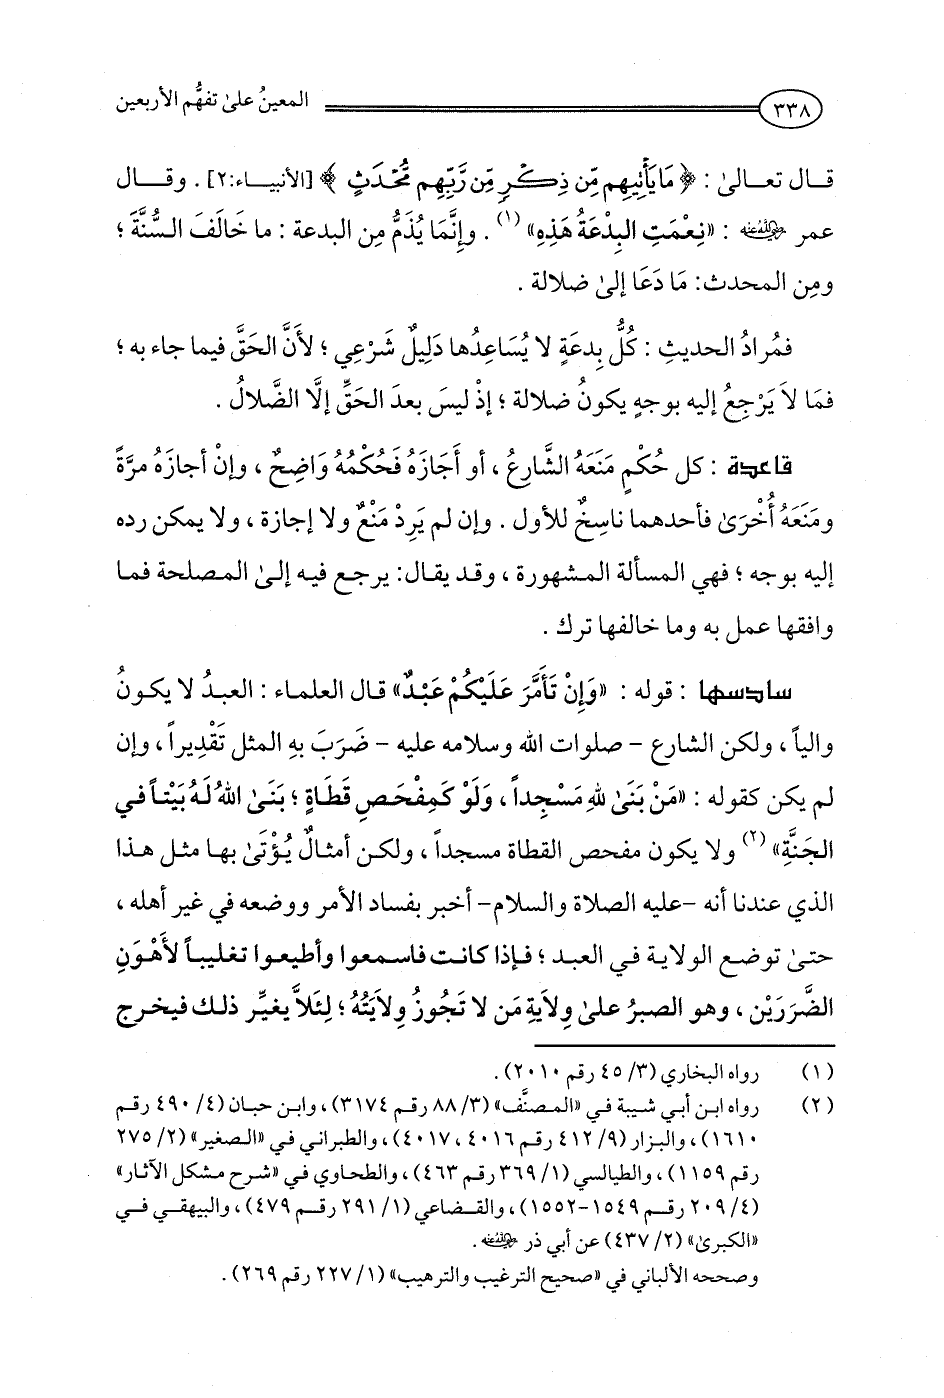 ٣٣٨ المعينُ على تفهُّم الأربعين
قال تعالىٰ : ﴿ مَا يَأْتِيهِم مِّن ذِكْرٍ مِّن رَّبِّهِم مُّحْدَثٍ ﴾ [الأنبياء:٢] . وقال
عمر رضي الله عنه : «نِعْمَتِ البِدْعَةُ هَذِهِ» (١) . وإنَّما يُذَمُّ مِن البدعة : ما خَالَفَ السُّنَّةَ ؛
ومِن المحدث: مَا دَعَا إلىٰ ضلالة .
فمُرادُ الحديثِ : كُلُّ بِدعَةٍ لا يُسَاعِدُها دَلِيلٌ شَرْعِي ؛ لأَنَّ الحَقَّ فيما جاء به ؛
فمَا لاَ يَرْجِعُ إليه بوجهٍ يكونُ ضلالة ؛ إذْ ليسَ بعدَ الحَقِّ إلَّا الضَّلالُ .
قاعدة : كل حُكْمٍ مَنَعَهُ الشَّارعُ ، أو أَجَازَهُ فَحُكْمُهُ وَاضِحٌ ، وإنْ أجازَهُ مرَّةً
ومَنَعَهُ أُخْرَىٰ فأحدهما ناسِخٌ للأول . وإن لم يَرِدْ مَنْعٌ ولا إجازة ، ولا يمكن رده
إليه بوجه ؛ فهي المسألة المشهورة ، وقد يقال: يرجع فيه إلىٰ المصلحة فما
وافقها عمل به وما خالفها ترك .
سادسها : قوله : «وَإِنْ تَأَمَّرَ عَلَيْكُمْ عَبْدٌ» قال العلماء : العبدُ لا يكونُ
والياً ، ولكن الشارع – صلوات الله وسلامه عليه – ضَرَبَ بِهِ المثل تَقْدِيراً ، وإن
لم يكن كقوله : «مَنْ بَنَىٰ لله مَسْجِداً ، وَلَوْ كَمِفْحَصِ قَطَاةٍ ؛ بَنَىٰ اللهُ لَهُ بَيْتاً في
الجَنَّةِ» (٢) ولا يكون مفحص القطاة مسجداً ، ولكن أمثالٌ يُؤْتَىٰ بها مثل هذا
الذي عندنا أنه –عليه الصلاة والسلام– أخبر بفساد الأمر ووضعه في غير أهله ،
حتىٰ توضع الولاية في العبد ؛ فإذا كانت فاسمعوا وأطيعوا تغليباً لأَهْوَنِ
الضَّرَرَيْن ، وهو الصبرُ علىٰ وِلاَيةِ مَن لا تَجُوزُ وِلاَيَتُهُ ؛ لِئَلاَّ يغيِّر ذلك فيخرج
(١) رواه البخاري (٣/ ٤٥ رقم ٢٠١٠) .
(٢) رواه ابن أبي شيبة في «المصنَّف» (٣/ ٨٨ رقم ٣١٧٤)، وابن حبان (٤/ ٤٩٠ رقم
١٦١٠)، والبزار (٩/ ٤١٢ رقم ٤٠١٦ ، ٤٠١٧)، والطبراني في «الصغير» (٢/ ٢٧٥
رقم ١١٥٩)، والطيالسي (١/ ٣٦٩ رقم ٤٦٣)، والطحاوي في «شرح مشكل الآثار»
(٤/ ٢٠٩ رقم ١٥٤٩-١٥٥٢)، والقضاعي (١/ ٢٩١ رقم ٤٧٩)، والبيهقي في
«الكبرىٰ» (٢/ ٤٣٧) عن أبي ذر رضي الله عنه .
وصححه الألباني في «صحيح الترغيب والترهيب» (١/ ٢٢٧ رقم ٢٦٩).